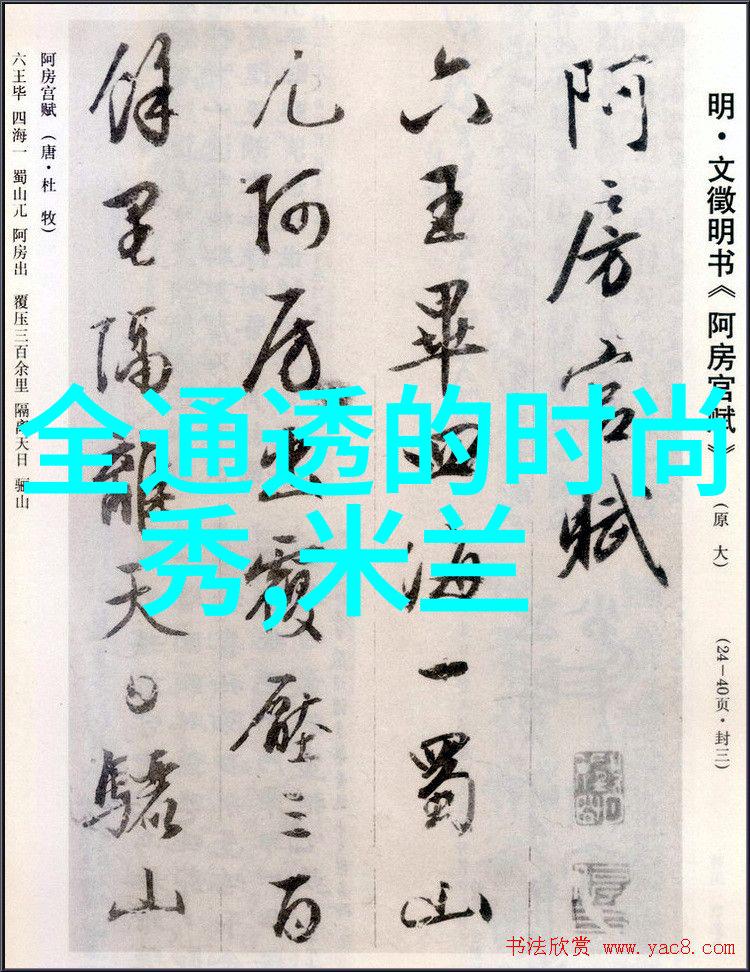 明·文徵明书《阿房宫赋》(原大) (24—40页·封三)
阿房宫赋
六王畢四海一蜀山
兀阿房出覆壓三百
餘里隔離天日驪山
阿房宫赋(唐·杜 牧)
六王毕 四海一 蜀山兀 阿房出 覆压三百余里 隔离天日 骊山
全通透的时尚
秀,米兰
书法欣赏 www.yac8.com